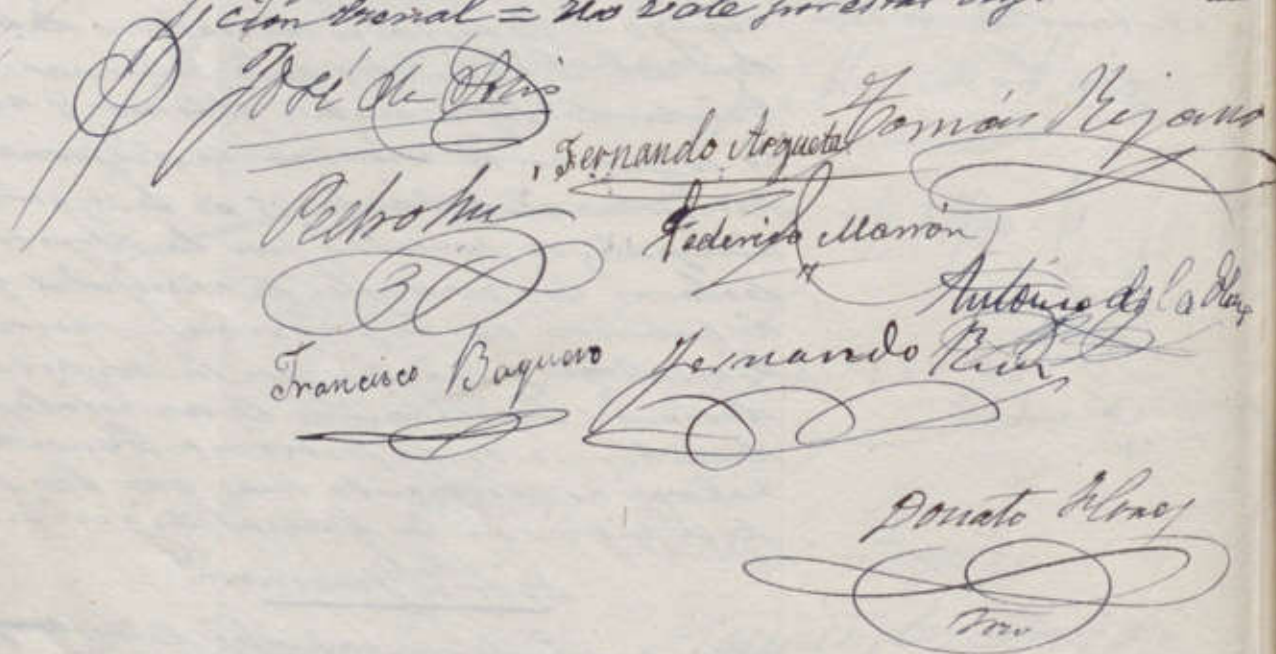 ción trenal = no vale por estar
José de Solis
Fernando Argueta Tomás Rejano
Pedro
Federico Marrón
Antonio de la
Francisco Baquero Fernando Ruiz
Donato Flores